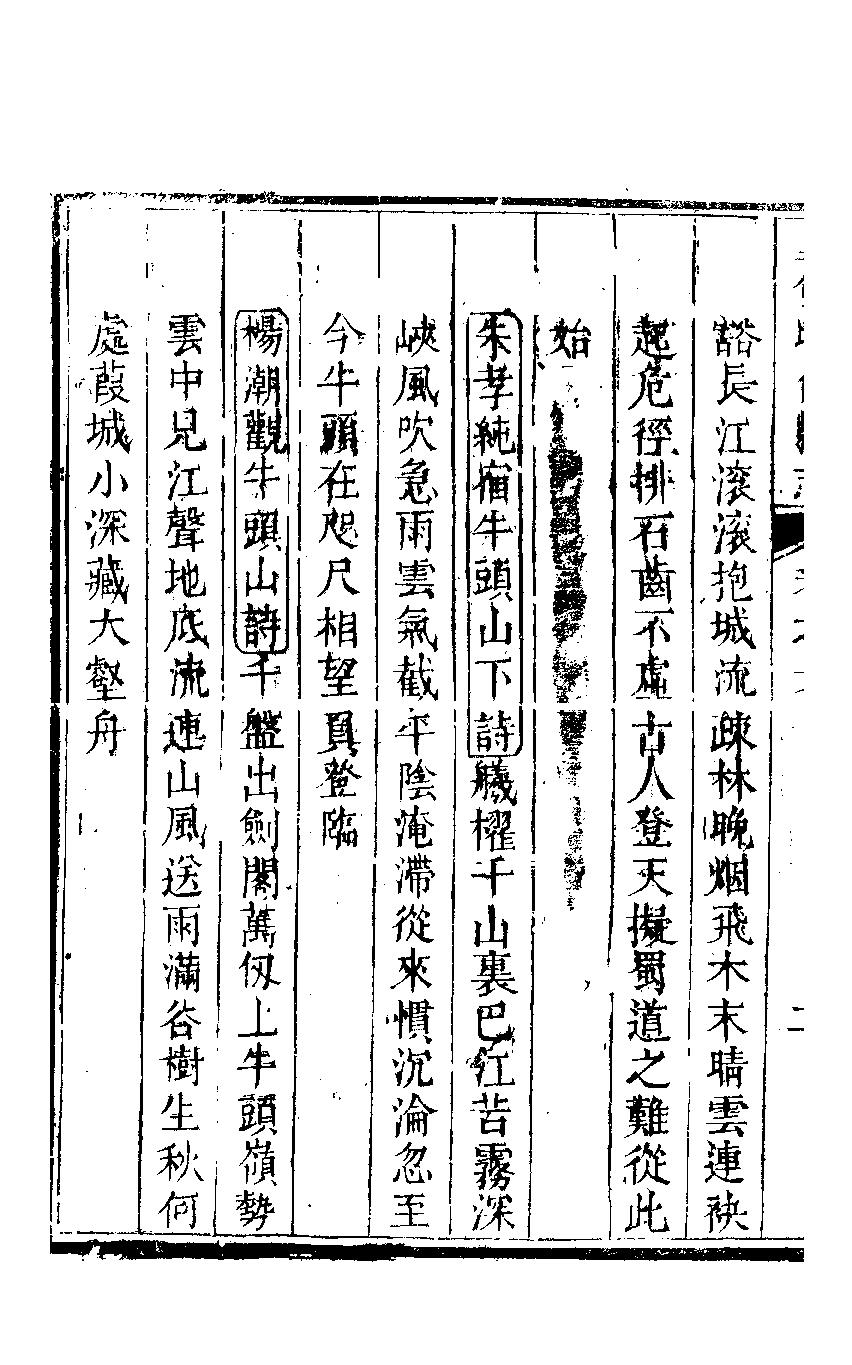 豁長江滚滚抱城流疎林晚烟飛木末晴雲連袂
起危徑排石齒不虛古人登天擬蜀道之難從此
始
朱孝純宿牛頭山下詩艤櫂千山裏巴江苦霧深
峽風吹急雨雲氣截平陰淹滯從來慣沉淪忽至
今牛頭在咫尺相望負登臨
楊潮觀牛頭山詩千盤出劍閣萬仭上牛頭嶺勢
雲中見江聲地底流連山風送雨滿谷樹生秋何
處葭城小深藏大壑舟